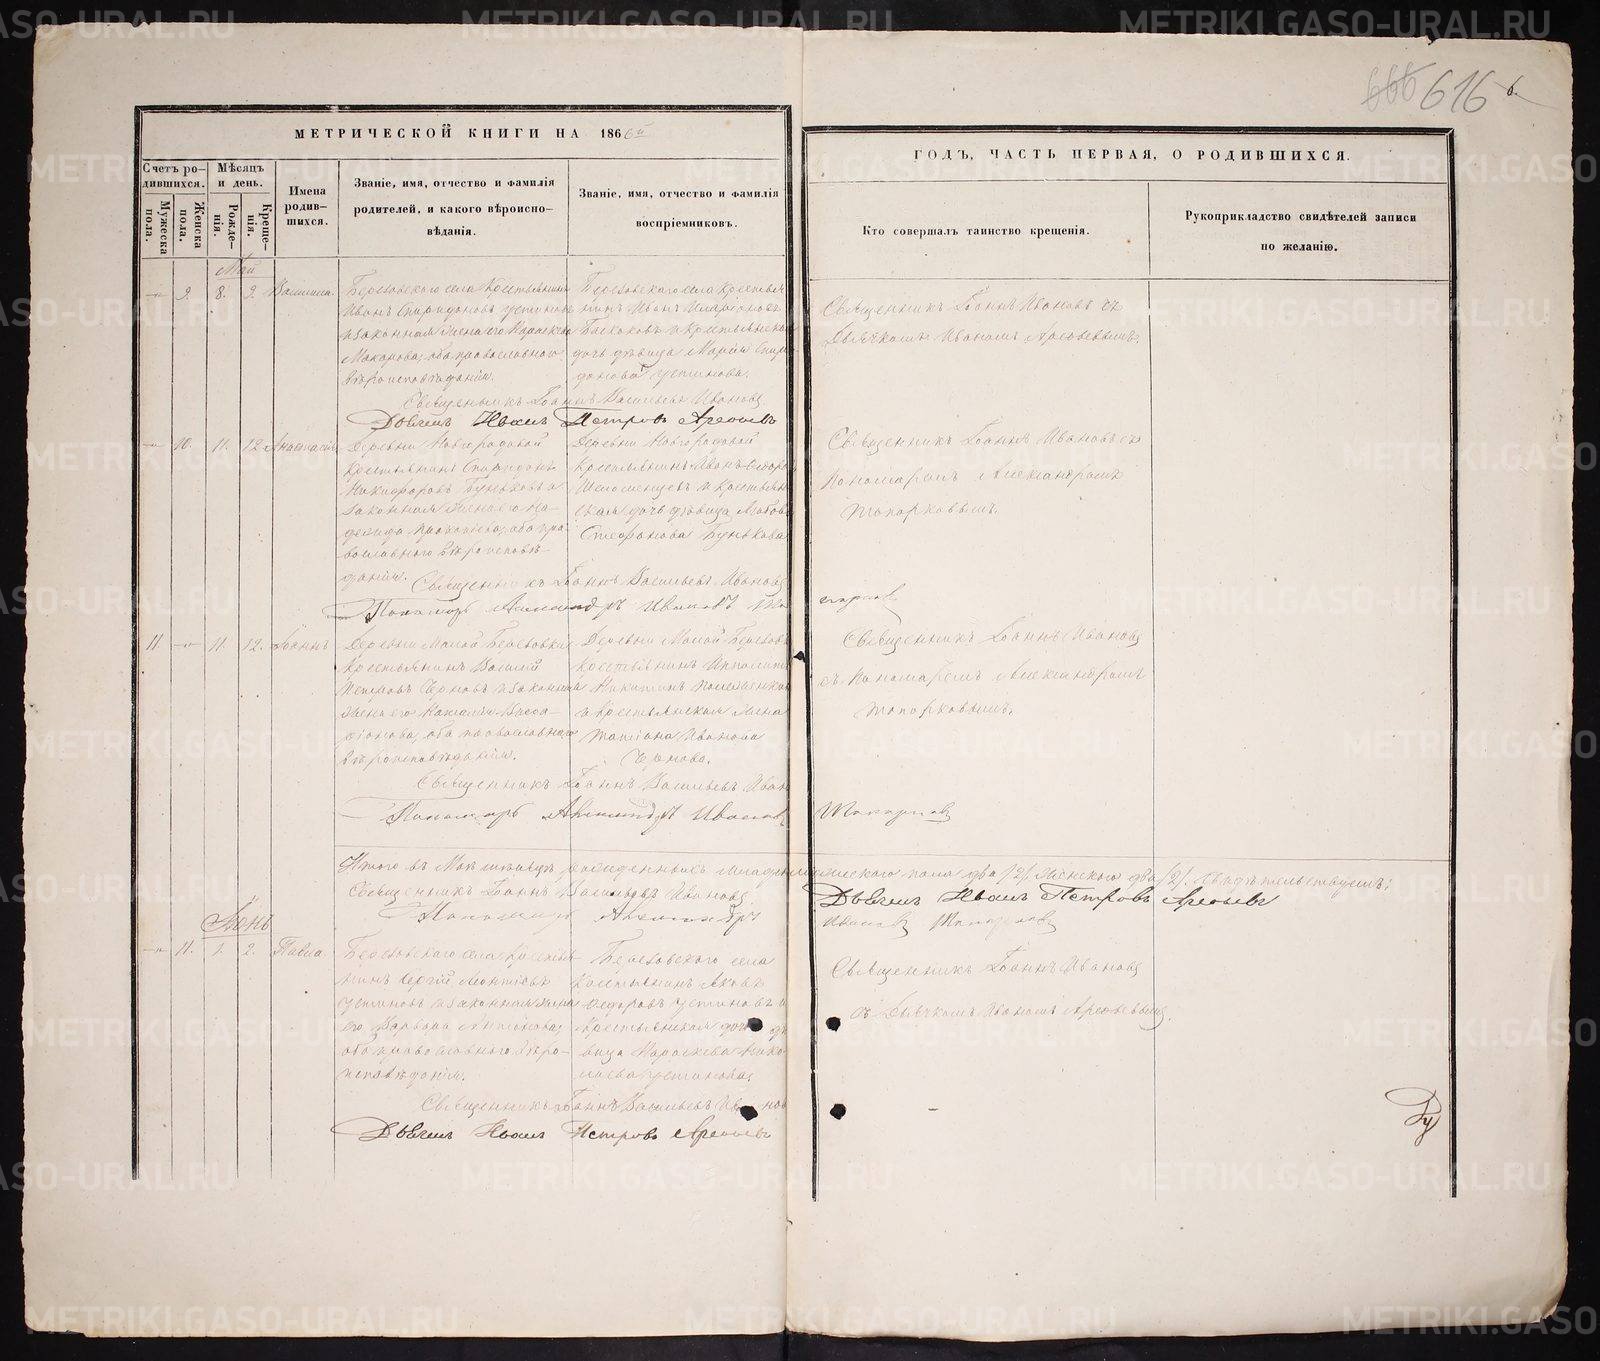 666 616 б.
МЕТРИЧЕСКОЙ КНИГИ НА 1866й
ГОДЪ, ЧАСТЬ ПЕРВАЯ, О РОДИВШИХСЯ.
Счетъ ро-
дившихся.
Мужеска
пола.
Женска
пола.
Мѣсяцъ
и день.
Рожде-
нія.
Креще-
нія.
Имена
родив-
шихся.
Званіе, имя, отчество и фамилія
родителей, и какого вѣроиспо-
вѣданія.
Званіе, имя, отчество и фамилія
воспріемниковъ.
Кто совершалъ таинство крещенія.
Рукоприкладство свидѣтелей записи
по желанію.
Май
9. 8. 9.
Березовскаго села крестьянинъ
Иванъ Спиридоновъ Устиновъ
и законная жена его Параскева
Макарова, оба православнаго
вѣроисповѣданія.
Березовскаго села крестьян
нинъ Иванъ
и крестьянская
дочь дѣвица Марія Спири
донова Устинова.
Священникъ Іоаннъ Ивановъ съ
Дьячкомъ Иваномъ Арефьевымъ.
Священникъ Іоаннъ Васильевъ Ивановъ
Дьячекъ Иванъ Петровъ Арефьевъ
10. 11. 12. Анастасія
Деревни Новгородовой
крестьянинъ Спиридонъ
Никифоровъ Буньковъ и
законная жена его На-
дежда Прокопьева, оба пра-
вославнаго вѣроисповѣ-
данія.
Деревни Новгородовой
крестьянинъ Иванъ Ѳедоро
и крестьян
ская дочь дѣвица Любовь
Стефанова Бунькова
Священникъ Іоаннъ Ивановъ съ
Пономаремъ Александромъ
Топорковымъ.
Священникъ Іоаннъ Васильевъ Ивановъ
Пономарь Александръ Ивановъ Топорковъ
11 11. 12. Іоаннъ
Деревни Малой Березовки
крестьянинъ Василій
Петровъ Черновъ и законная
жена его Наталія
оба православнаго
вѣроисповѣданія.
Деревни Малой Березовк
крестьянинъ Ипполитъ
Никитинъ
и крестьянская жена
Татіана Иванова
Чернова.
Священникъ Іоаннъ Ивановъ
съ Пономаремъ Александромъ
Топорковымъ.
Священникъ Іоаннъ Васильевъ Иван
Пономарь Александръ Ивановъ Топорковъ
Итого въ Маѣ мѣсяцѣ рожденныхъ мужескаго пола два /2/, женскаго два /2/. Свидѣтельствуемъ:
Священникъ Іоаннъ Васильевъ Ивановъ. Дьячекъ Иванъ Петровъ Арефьевъ
Пономарь Александръ Ивановъ Топорковъ
Іюнь
11. 1. 2. Павла
Березовскаго села крестья-
нинъ Сергій Леонтіевъ
Устиновъ и законная жена
его Варвара
оба православнаго вѣро-
исповѣданія.
Березовскаго села
крестьянинъ Яковъ
Ѳедоровъ Устиновъ и
крестьянская дочь дѣ
вица Параскева Нико
лаева Устинова.
Священникъ Іоаннъ Ивановъ
съ Дьячкомъ Иваномъ Арефьевымъ.
Священникъ Іоаннъ Васильевъ Ивановъ
Дьячекъ Иванъ Петровъ Арефьевъ
METRIKI.GASO-URAL.RU